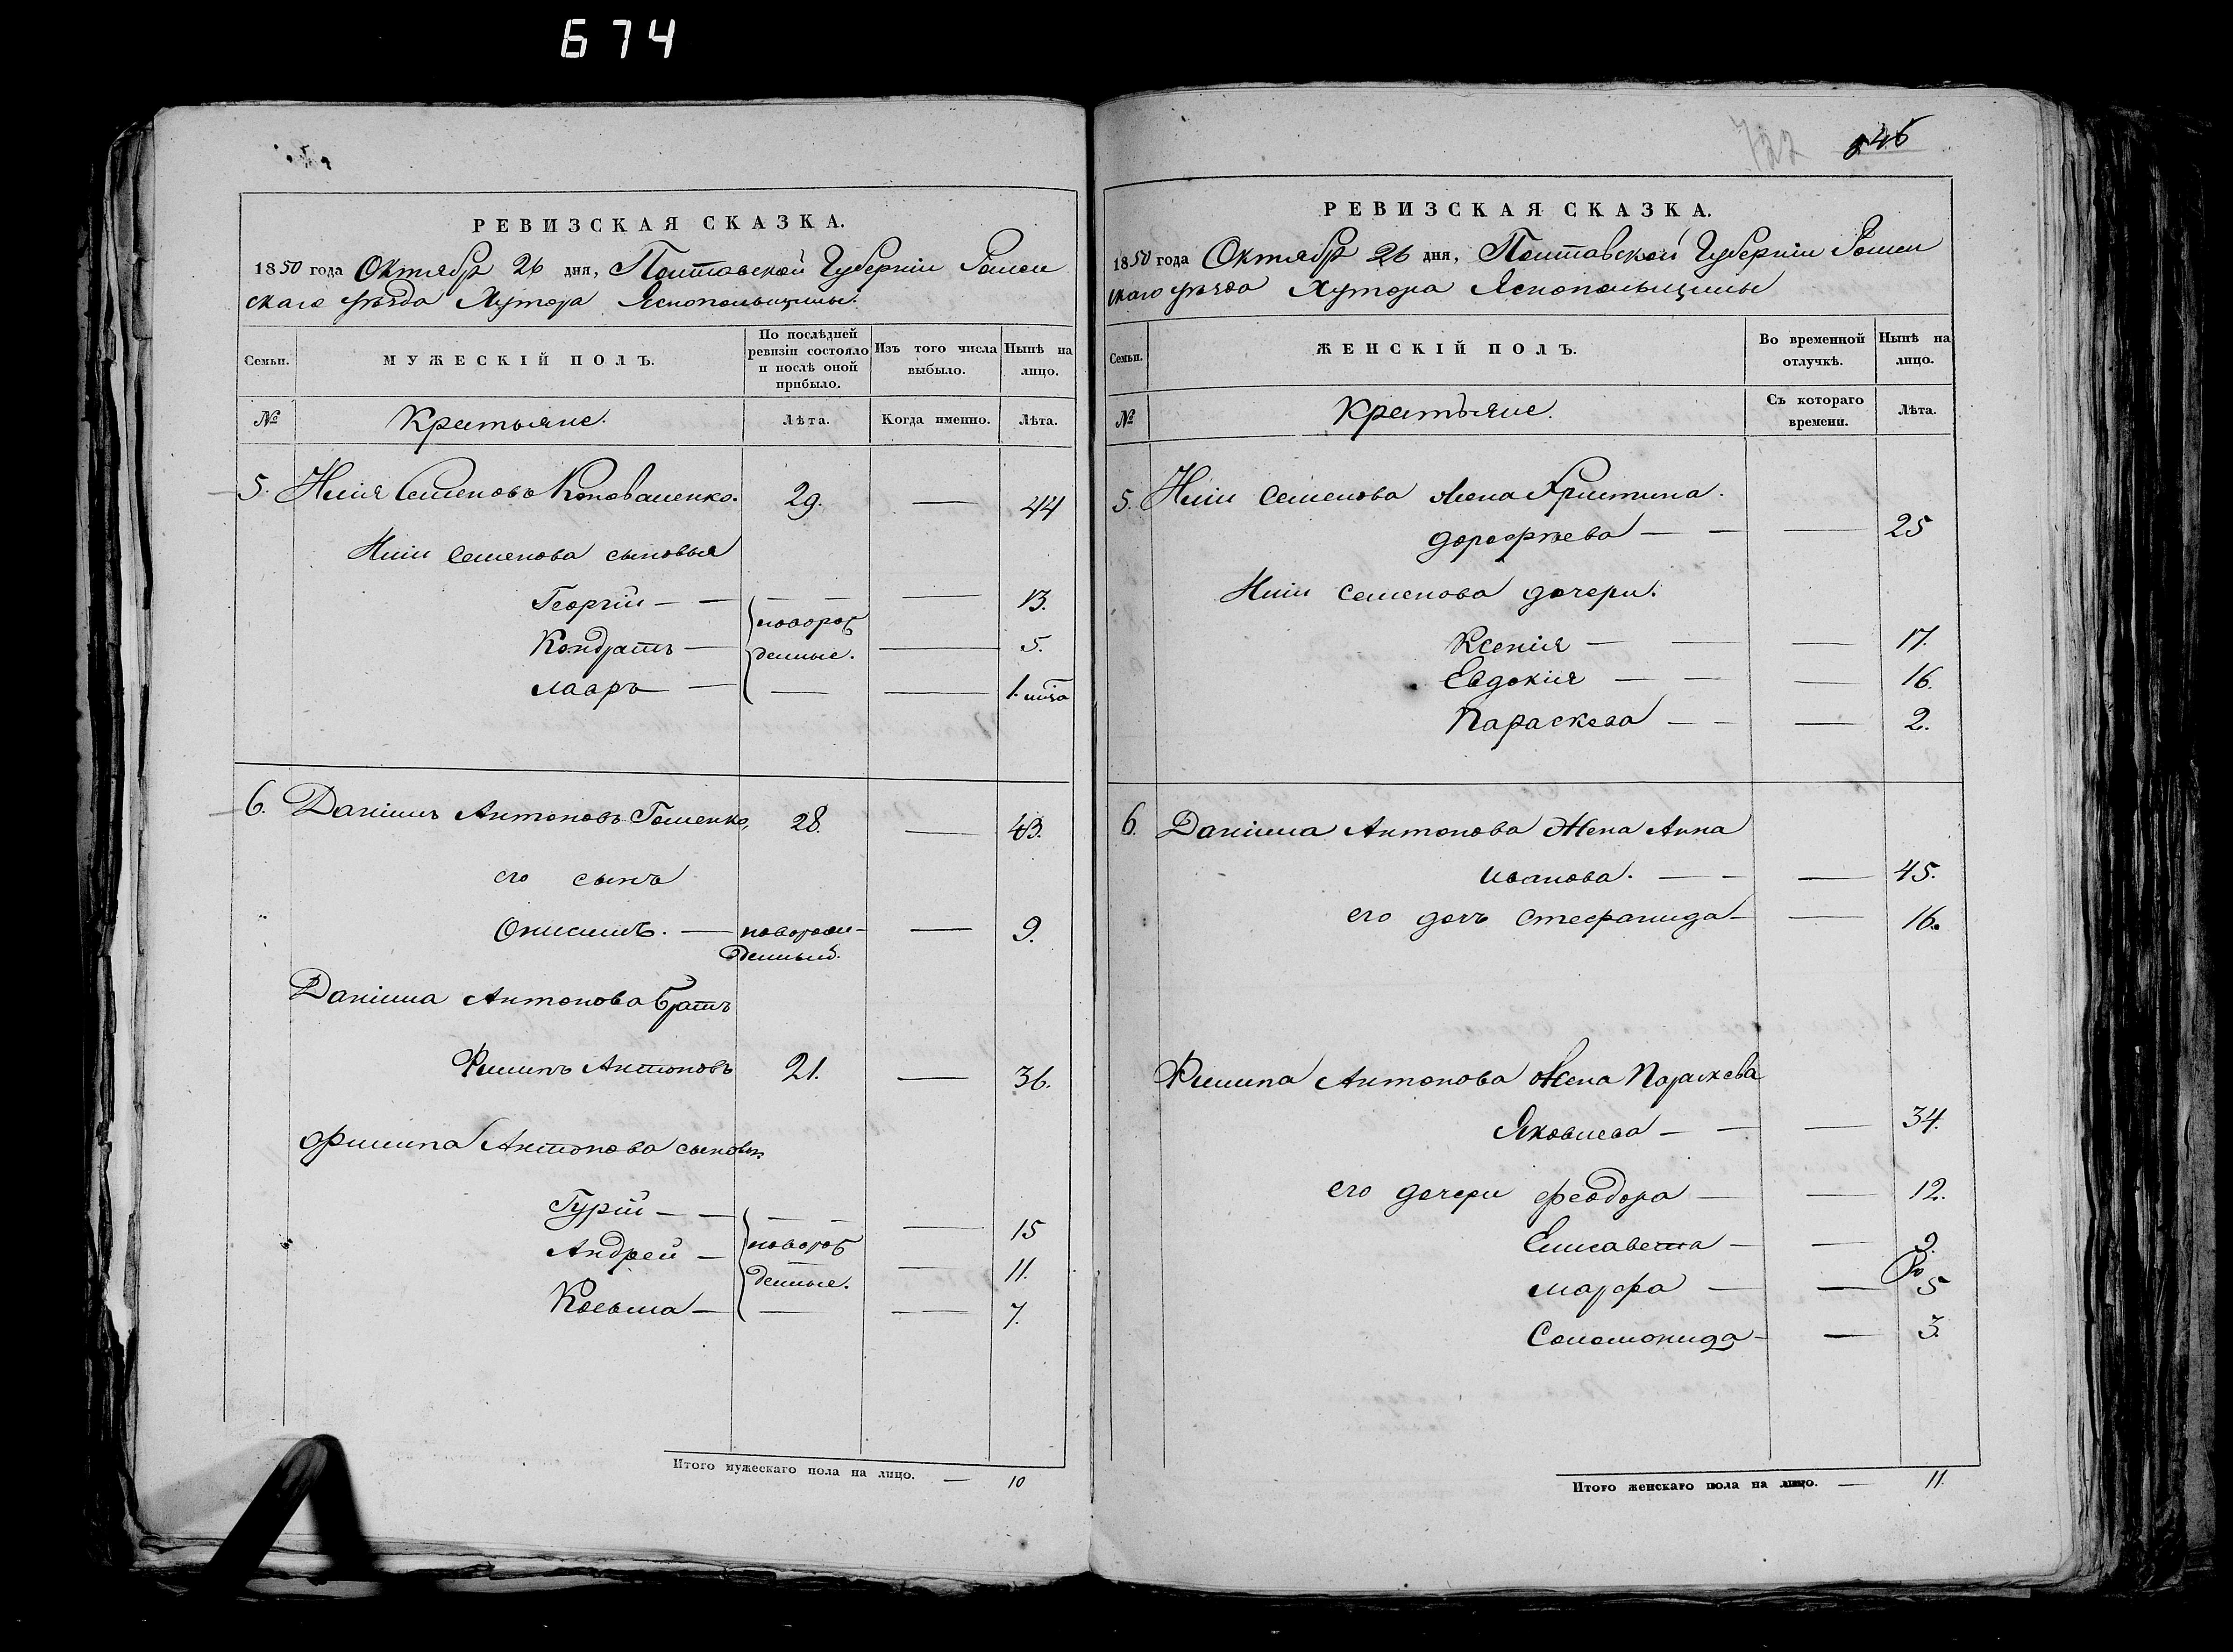 674
РЕВИЗСКАЯ СКАЗКА.
1850 года Октября 26 дня, Полтавской Губерніи Ромен
скаго уѣзда Хутора Яснопольщины.
Семьи.
МУЖЕСКІЙ ПОЛЪ.
По послѣдней ревизіи состояло и послѣ оной прибыло.
Изъ того числа выбыло.
Нынѣ на лицо.
№ Крестьяне. Лѣта. Когда именно. Лѣта.
5. Илія Семеновъ Коноваленко. 29. — 44
Иліи Семенова сыновья
Георгій — — — — — 13.
новорож
Кондратъ — — 5.
денные.
Лавръ — — — 1. мѣца
6. Даніилъ Антоновъ Гоменко, 28. — 43.
его сынъ
Онисимъ. — новорож- — 9.
денный.
Даніила Антонова братъ
Филипъ Антоновъ 21. — 36.
Филипа Антонова сыновья
Гурій — — — — — 15
новорож
Андрей — — 11.
денные.
Косьма — — — — 7.
Итого мужескаго пола на лицо. — 10
722 546
РЕВИЗСКАЯ СКАЗКА.
1850 года Октября 26 дня, Полтавской Губерніи Ромен
скаго уѣзда Хутора Яснопольщины
Семьи.
ЖЕНСКІЙ ПОЛЪ.
Во временной отлучкѣ.
Нынѣ на лицо.
№ Крестьяне. Съ котораго времени. Лѣта.
5. Иліи Семенова жена Христина.
Дорофѣева — — — 25
Иліи Семенова дочери.
Ксенія — — — 17.
Евдокія — — — 16.
Параскева — — — 2.
6. Даніила Антонова жена Анна
Иванова. — — — 45.
его дочь Стефанида — — 16.
Филипа Антонова жена Параскева
Яковлева — — — 34.
его дочери Феодора — — 12.
Елисавета — — 9.
Марфа — — 5
Соломонида — — 3.
Итого женскаго пола на лицо. — 11.